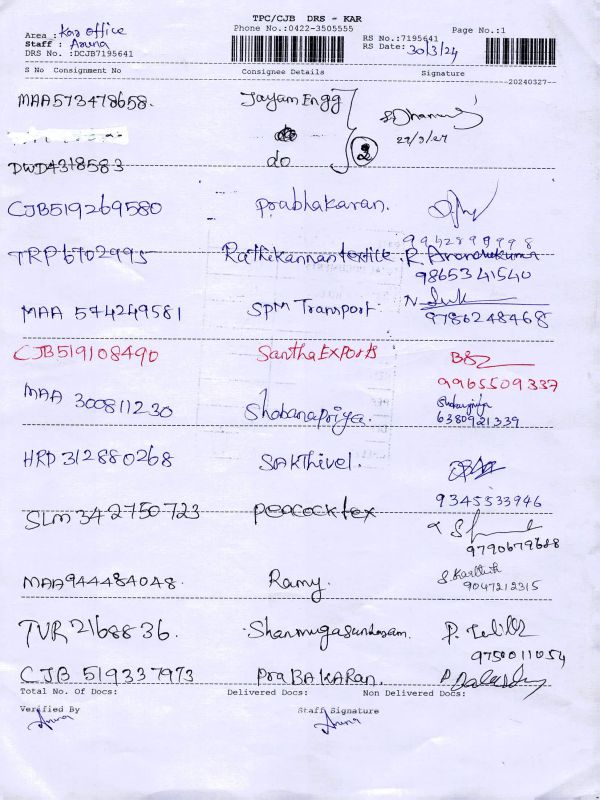 TPC/CJB DRS - KAR
Area : Kar office Phone No.:0422-3505555 RS No.:7195641 Page No.:1
Staff : Aruna RS Date: 30/3/24
DRS No. :DCJB7195641
S No Consignment No Consignee Details Signature
--20240327--
MAA573478658. Jayam Engg
29/3/24
DWD4318583 do 2
CJB519269580 Prabhakaran.
9962898998
TRP6702995 Rathikannan textile R. Arunkumar
9865341540
MAA 574249581 SPM Transport
9786248468
CJB519108490 Santha Exports
9965509337
MAA 300811230 Shobanapriya.
6380921339
HRD 312880268 SAKThivel.
9345533946
SLM 342750723 Peacock tex
9790679688
MAA944484048. Ramy. S. Karthik
9047212315
TVR 2168836. Shanmugasundaram.
9750011054
CJB 519337973 PraBAKARan.
Total No. Of Docs: Delivered Docs: Non Delivered Docs:
Verified By Staff Signature
Aruna Aruna